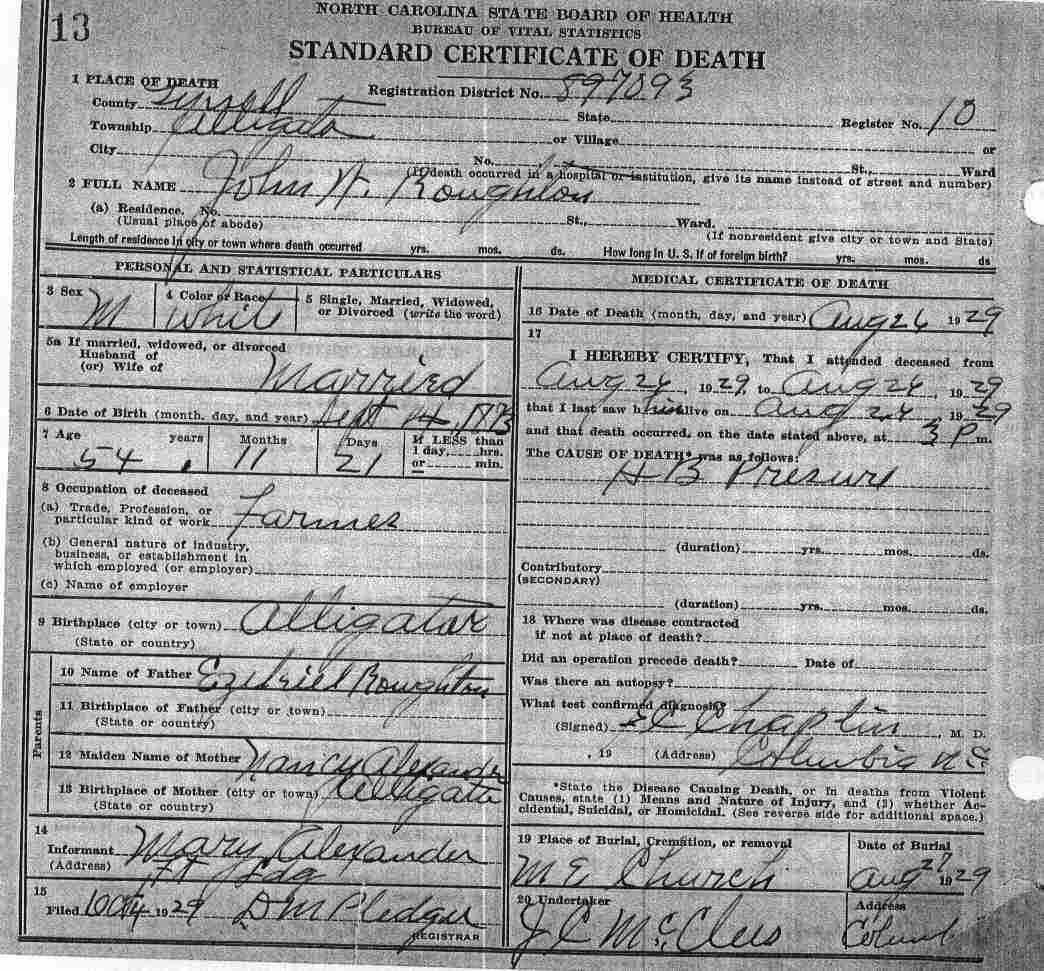 13
NORTH CAROLINA STATE BOARD OF HEALTH
BUREAU OF VITAL STATISTICS
STANDARD CERTIFICATE OF DEATH
1 PLACE OF DEATH
Registration District No. 897093
County Tyrrell State Register No. 10
Township Alligator or Village or
City No. St., Ward
(If death occurred in a hospital or institution, give its name instead of street and number)
2 FULL NAME John W. Roughton
(a) Residence. No. St., Ward.
(Usual place of abode) (If nonresident give city or town and State)
Length of residence in city or town where death occurred yrs. mos. ds. How long in U. S. if of foreign birth? yrs. mos. ds
PERSONAL AND STATISTICAL PARTICULARS
3 Sex M
4 Color or Race White
5 Single, Married, Widowed,
or Divorced (write the word)
5a If married, widowed, or divorced
Husband of
(or) Wife of Married
6 Date of Birth (month, day, and year) Sept 4, 1873
7 Age years Months Days If LESS than
1 day, hrs.
or min.
54 11 21
8 Occupation of deceased
(a) Trade, Profession, or
particular kind of work Farmer
(b) General nature of industry,
business, or establishment in
which employed (or employer)
(c) Name of employer
9 Birthplace (city or town) Alligator
(State or country)
Parents
10 Name of Father Ezekriel Roughton
11 Birthplace of Father (city or town)
(State or country)
12 Maiden Name of Mother Nancy Alexander
13 Birthplace of Mother (city or town) Alligator
(State or country)
14
Informant Mary Alexander
(Address)
15
Filed Oct 4 1929 D M Pledger
REGISTRAR
MEDICAL CERTIFICATE OF DEATH
16 Date of Death (month, day, and year) Aug 26 1929
17
I HEREBY CERTIFY, That I attended deceased from
Aug 26, 1929, to Aug 26, 1929
that I last saw him alive on Aug 26, 1929
and that death occurred, on the date stated above, at 3 P m.
The CAUSE OF DEATH* was as follows:
H B Presure
(duration) yrs. mos. ds.
Contributory
(SECONDARY)
(duration) yrs. mos. ds.
18 Where was disease contracted
if not at place of death?
Did an operation precede death? Date of
Was there an autopsy?
What test confirmed diagnosis?
(Signed) C Chaplin, M. D.
, 19 (Address) Columbia N.C.
*State the Disease Causing Death, or in deaths from Violent
Causes, state (1) Means and Nature of Injury, and (2) whether Ac-
cidental, Suicidal, or Homicidal. (See reverse side for additional space.)
19 Place of Burial, Cremation, or removal
M E Church
Date of Burial
Aug 27 1929
20 Undertaker
J C McClees
Address
Columb